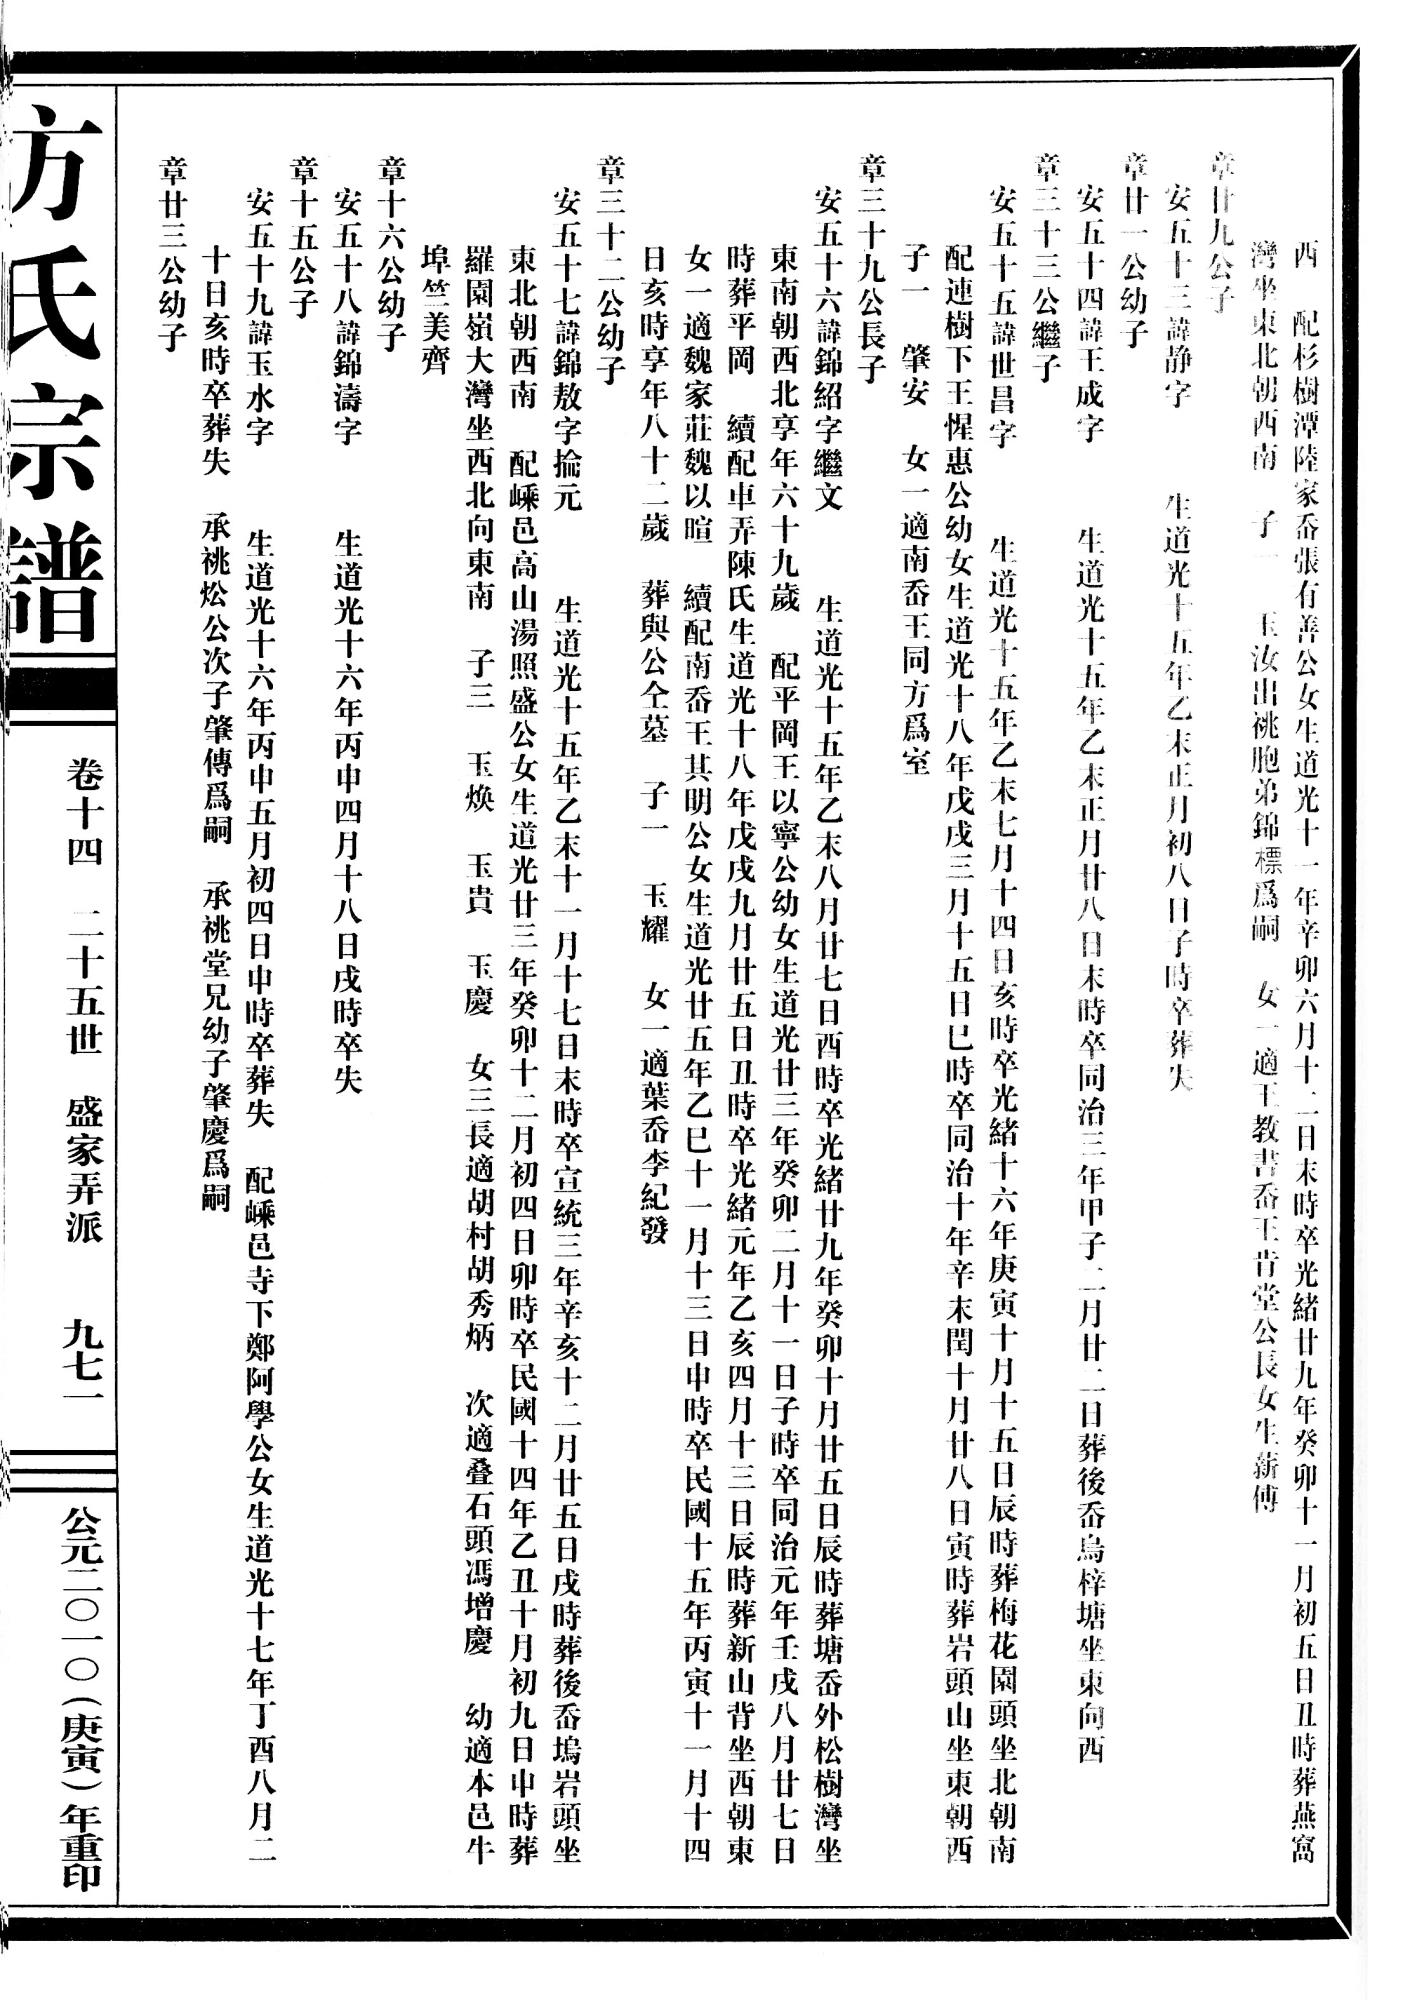 西　配杉樹潭陸家岙張有善公女生道光十一年辛卯六月十二日未時卒光緒廿九年癸卯十一月初五日丑時葬燕窩
灣坐東北朝西南　子一　玉汝出祧胞弟錦標爲嗣　女一適王教書岙王肯堂公長女生薪傅
章廿九公子
安五十三諱静字　生道光十五年乙未正月初八日子時卒葬失
章廿一公幼子
安五十四諱王成字　生道光十五年乙未正月廿八日未時卒同治三年甲子二月廿二日葬後岙烏梓塘坐東向西
章三十三公繼子
安五十五諱世昌字　生道光十五年乙未七月十四日亥時卒光緒十六年庚寅十月十五日辰時葬梅花園頭坐北朝南
配連樹下王惺惠公幼女生道光十八年戊戌三月十五日巳時卒同治十年辛未閏十月廿八日寅時葬岩頭山坐東朝西
子一　肇安　女一適南岙王同方爲室
章三十九公長子
安五十六諱錦紹字繼文　生道光十五年乙未八月廿七日酉時卒光緒廿九年癸卯十月廿五日辰時葬塘岙外松樹灣坐
東南朝西北享年六十九歲　配平岡王以寧公幼女生道光廿三年癸卯二月十一日子時卒同治元年壬戌八月廿七日
時葬平岡　續配車弄陳氏生道光十八年戊戌九月廿五日丑時卒光緒元年乙亥四月十三日辰時葬新山背坐西朝東
女一適魏家莊魏以暄　續配南岙王其明公女生道光廿五年乙巳十一月十三日申時卒民國十五年丙寅十一月十四
日亥時享年八十二歲　葬與公仝墓　子一　玉耀　女一適葉岙李紀發
章三十二公幼子
安五十七諱錦敖字掄元　生道光十五年乙未十一月十七日未時卒宣統三年辛亥十二月廿五日戌時葬後岙塢岩頭坐
東北朝西南　配嵊邑高山湯照盛公女生道光廿三年癸卯十二月初四日卯時卒民國十四年乙丑十月初九日申時葬
羅園嶺大灣坐西北向東南　子三　玉焕　玉貴　玉慶　女三長適胡村胡秀炳　次適叠石頭馮增慶　幼適本邑牛
埠竺美齊
章十六公幼子
安五十八諱錦濤字　生道光十六年丙申四月十八日戌時卒失
章十五公子
安五十九諱玉水字　生道光十六年丙申五月初四日申時卒葬失　配嵊邑寺下鄭阿學公女生道光十七年丁酉八月二
十日亥時卒葬失　承祧炂公次子肇傳爲嗣　承祧堂兄幼子肇慶爲嗣
章廿三公幼子
方氏宗譜
卷十四　二十五世　盛家弄派　九七一
公元二〇一〇（庚寅）年重印